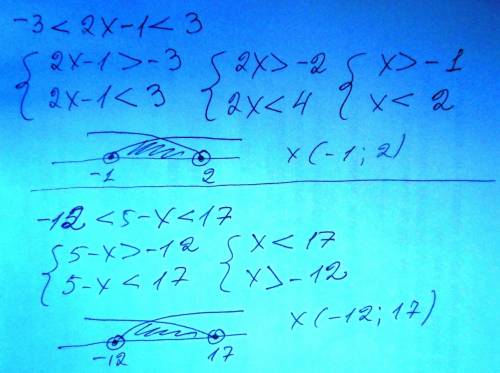 -3 < 2x-1 < 3
{ 2x-1 > -3 { 2x > -2 { x > -1
{ 2x-1 < 3 { 2x < 4 { x < 2
-1 2 x (-1; 2)
-12 < 5-x < 17
{ 5-x > -12 { x < 17
{ 5-x < 17 { x > -12
-12 17 x (-12; 17)